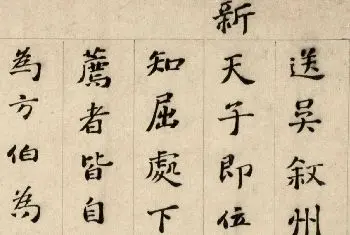 送吳叙州
新天子即位
知屈處下
薦者皆自
為方伯為